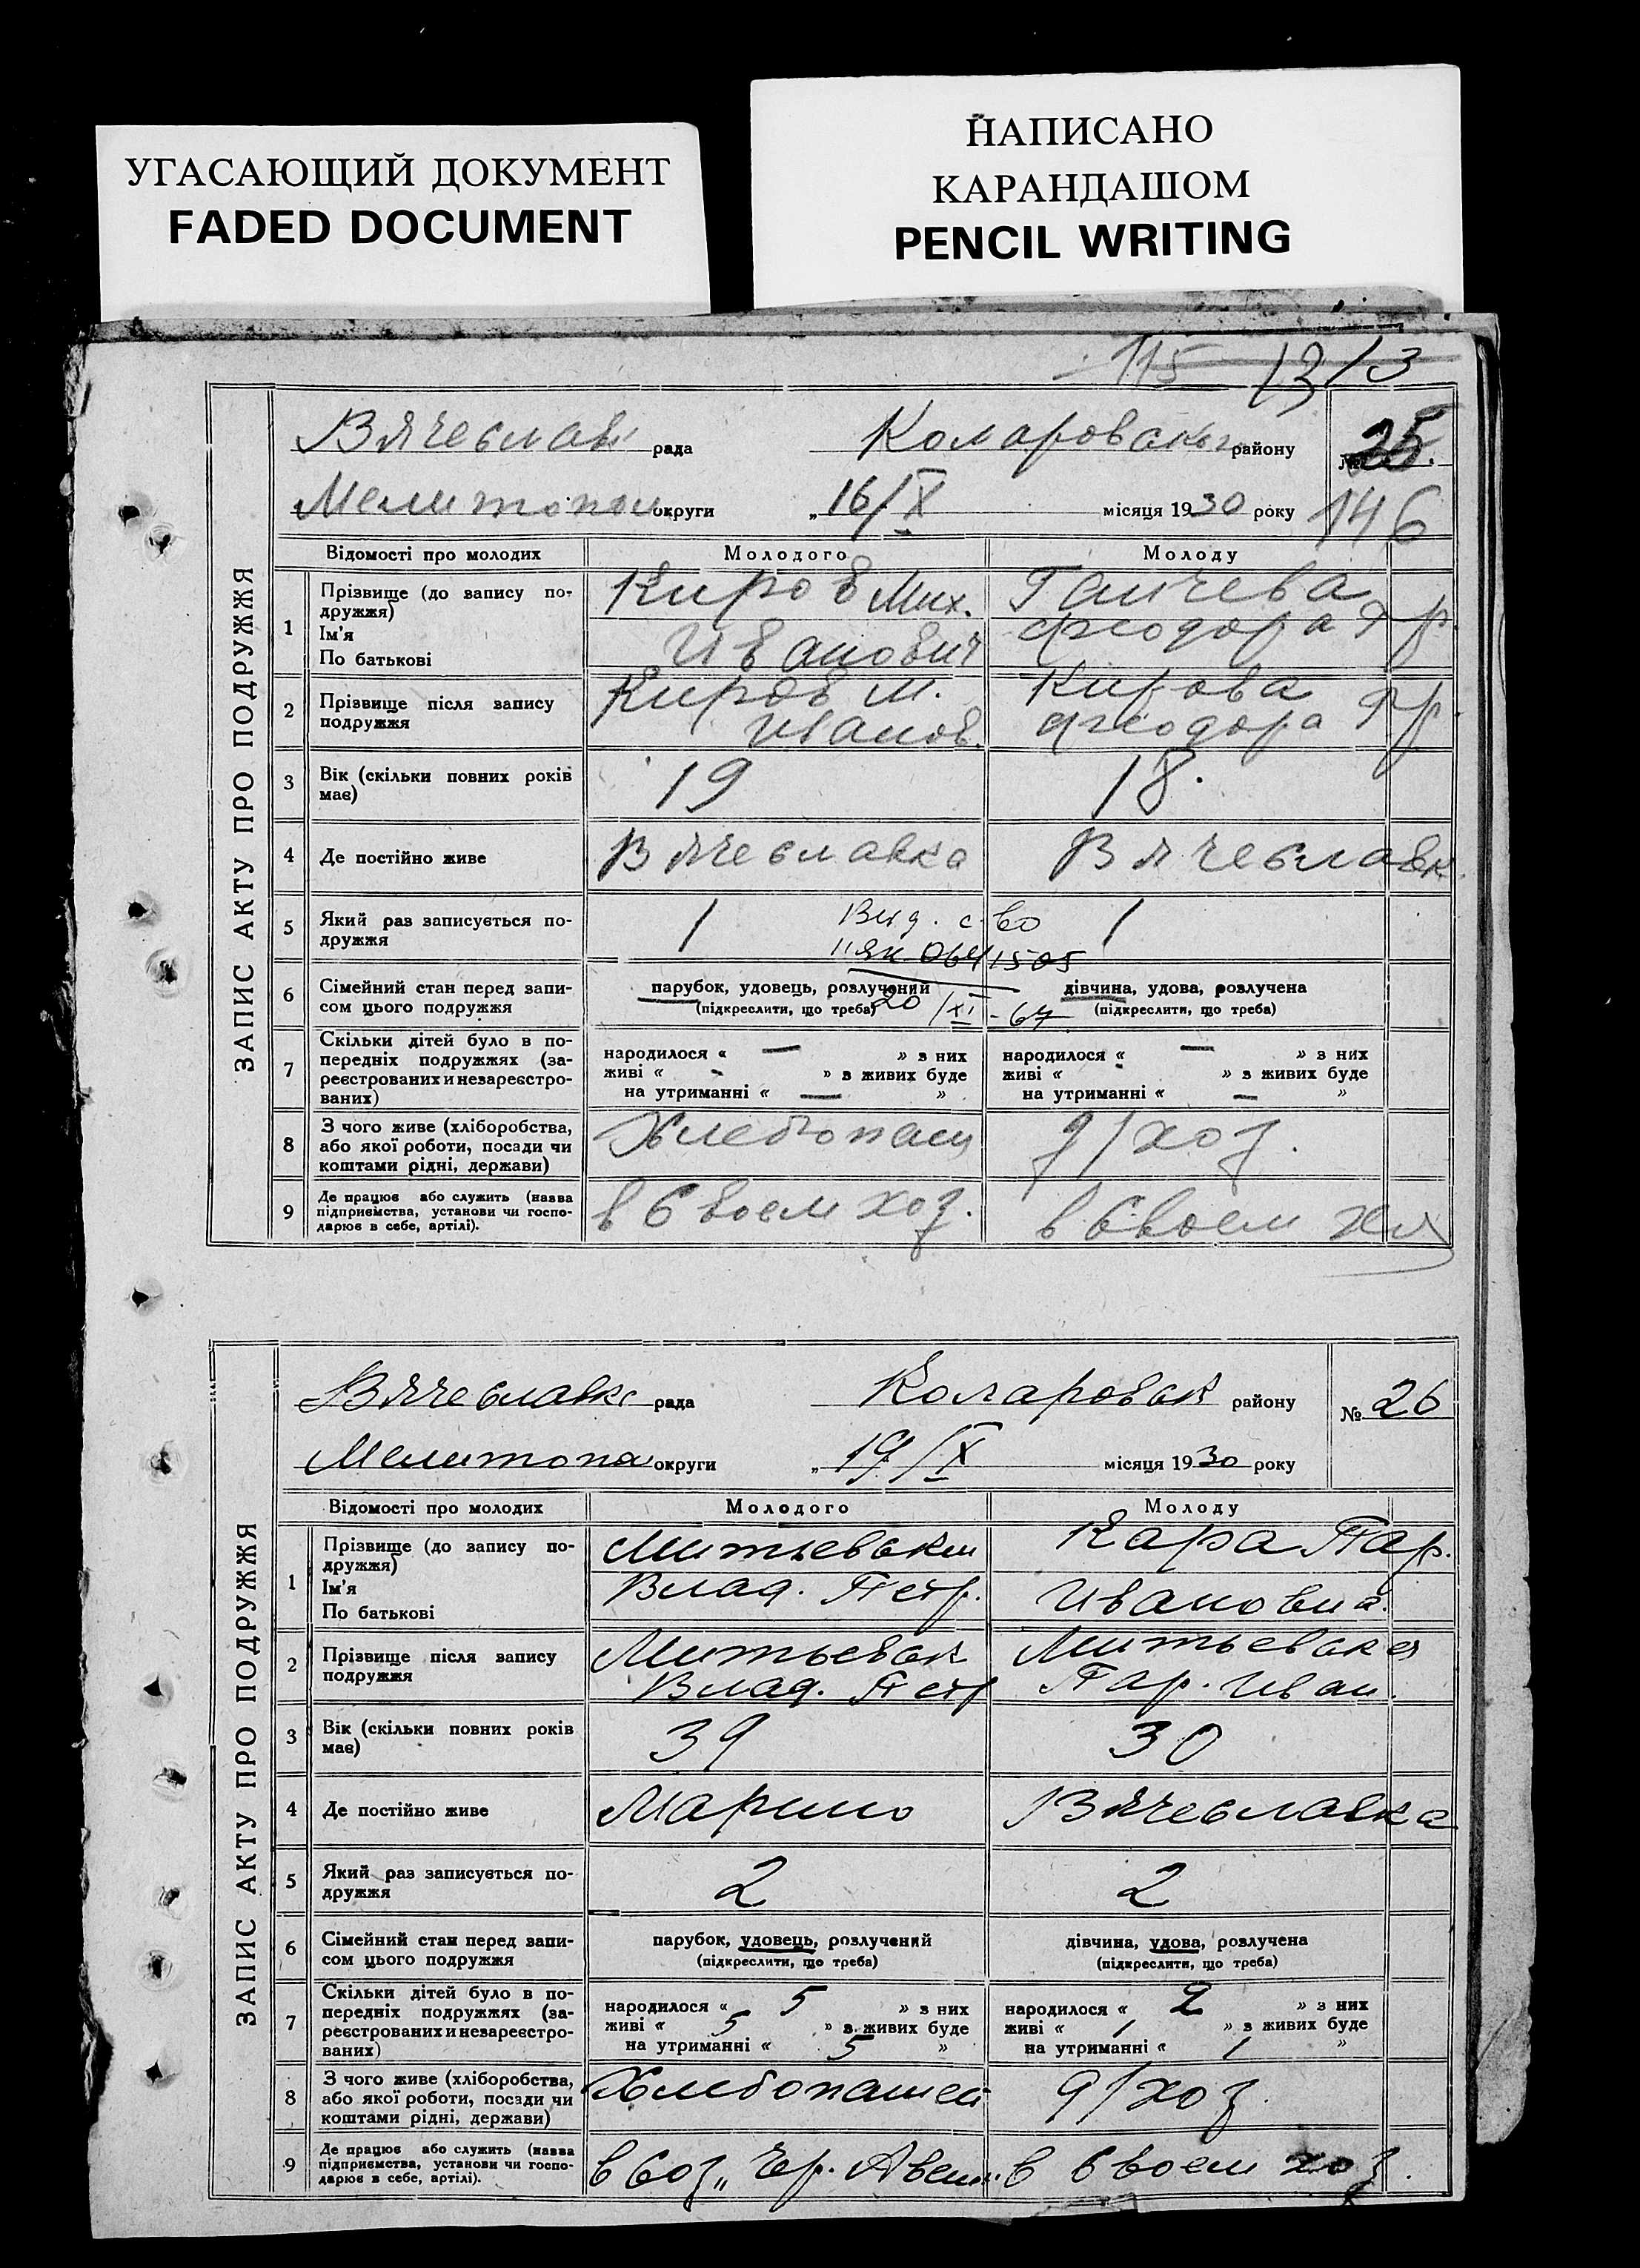 УГАСАЮЩИЙ ДОКУМЕНТ
FADED DOCUMENT
НАПИСАНО
КАРАНДАШОМ
PENCIL WRITING
115 13 13
ЗАПИС АКТУ ПРО ПОДРУЖЖЯ
Вячеславк рада Коларовского району № 25.
Мелитопол округи „16/IX місяця 1930 року 146
Відомості про молодих Молодого Молоду
1 Прізвище (до запису по-
дружжя)
Ім'я
По батькові
Киров Мих.
Иванович
Ганчева
Феодора Фр.
2 Прізвище після запису
подружжя
Киров М.
Иванов.
Кирова
Феодора Фр.
3 Вік (скільки повних років
має)
19 18.
4 Де постійно живе Вячеславка Вячеславк.
5 Який раз записується по-
дружжя
1 1
Выд. с-во
"ЯК 0641505
20/XI-67
6 Сімейний стан перед запи-
сом цього подружжя
парубок, удовець, розлучений
(підкреслити, що треба)
дівчина, удова, розлучена
(підкреслити, що треба)
7 Скільки дітей було в по-
передніх подружжях (за-
реєстрованих и незареєстро-
ваних)
народилося « — » з них
живі « - » з живих буде
на утриманні « — »
народилося « — » з них
живі « - » з живих буде
на утриманні « — »
8 З чого живе (хліборобства,
або якої роботи, посади чи
коштами рідні, держави)
Хлебопаш д/хоз.
9 Де працює або служить (назва
підприємства, установи чи госпо-
дарює в себе, артілі).
в своем хоз. в своем
ЗАПИС АКТУ ПРО ПОДРУЖЖЯ
Вячеславк рада Коларовск району № 26
Мелитопол округи „19/IX місяця 1930 року
Відомості про молодих Молодого Молоду
1 Прізвище (до запису по-
дружжя)
Ім'я
По батькові
Митьевский
Влад. Петр.
Кара Пар.
Ивановна
2 Прізвище після запису
подружжя
Митьевск
Влад. Петр
Митьевска
Пар. Иван.
3 Вік (скільки повних років
має)
39 30
4 Де постійно живе Марино Вячеславка
5 Який раз записується по-
дружжя
2 2
6 Сімейний стан перед запи-
сом цього подружжя
парубок, удовець, розлучений
(підкреслити, що треба)
дівчина, удова, розлучена
(підкреслити, що треба)
7 Скільки дітей було в по-
передніх подружжях (за-
реєстрованих и незареєстро-
ваних)
народилося « 5 » з них
живі « 5 » з живих буде
на утриманні « 5 »
народилося « 2 » з них
живі « 1 » з живих буде
на утриманні « 1 »
8 З чого живе (хліборобства,
або якої роботи, посади чи
коштами рідні, держави)
Хлебопашей д/хоз
9 Де працює або служить (назва
підприємства, установи чи госпо-
дарює в себе, артілі).
в соз „ в своем хоз.